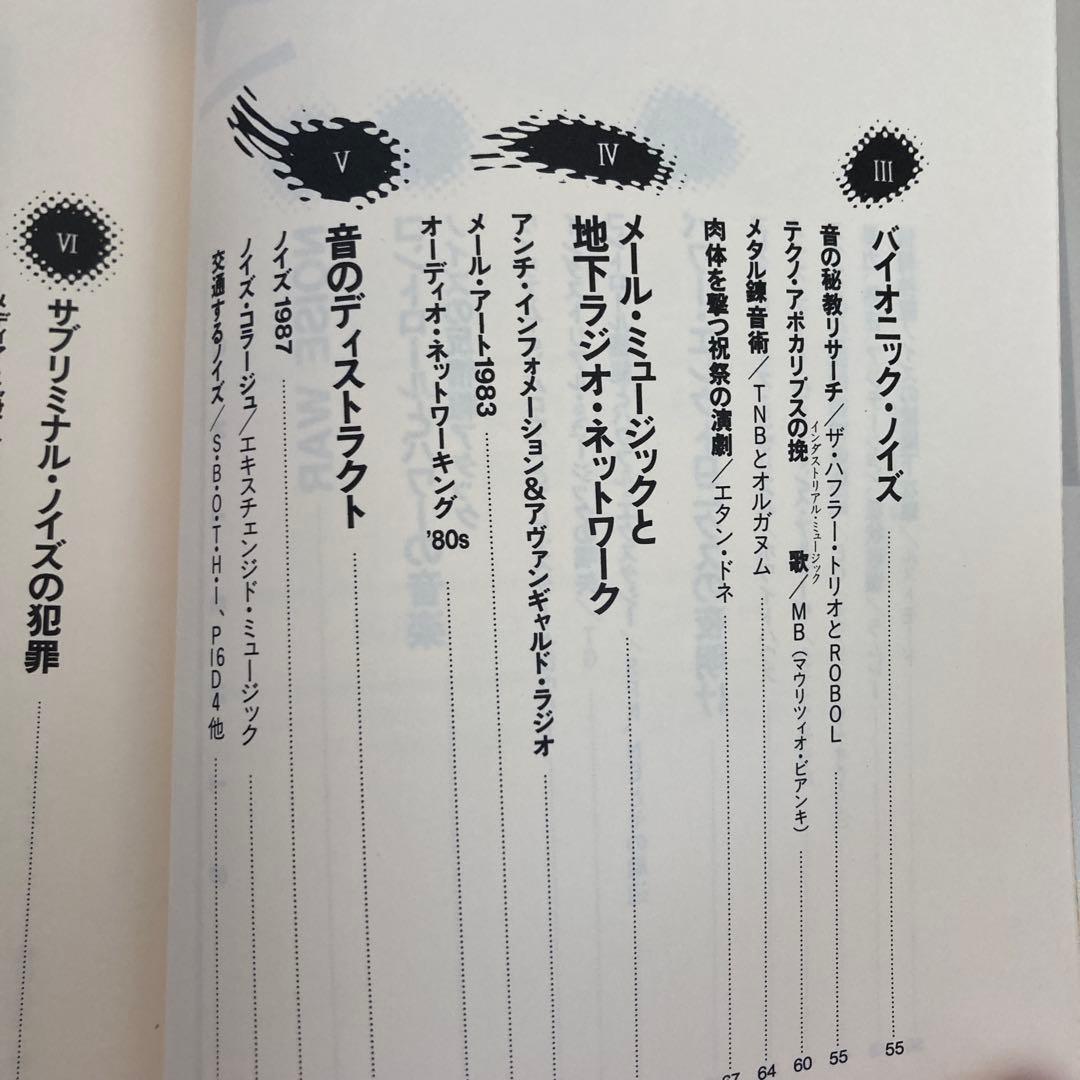 III
バイオニック・ノイズ 55
音の秘教リサーチ/ザ・ハフラー・トリオとROBOL 55
テクノ・アポカリプスの挽歌/MB(マウリツィオ・ビアンキ) 60
インダストリアル・ミュージック
メタル錬音術/TNBとオルガヌム 64
肉体を撃つ祝祭の演劇/エタン・ドネ 67
IV
メール・ミュージックと
地下ラジオ・ネットワーク
アンチ・インフォメーション&アヴァンギャルド・ラジオ
メール・アート1983
オーディオ・ネットワーキング '80s
V
音のディストラクト
ノイズ 1987
ノイズ・コラージュ/エキスチェンジド・ミュージック
交通するノイズ/S・B・O・T・H・I、P16D4他
VI
サブリミナル・ノイズの犯罪